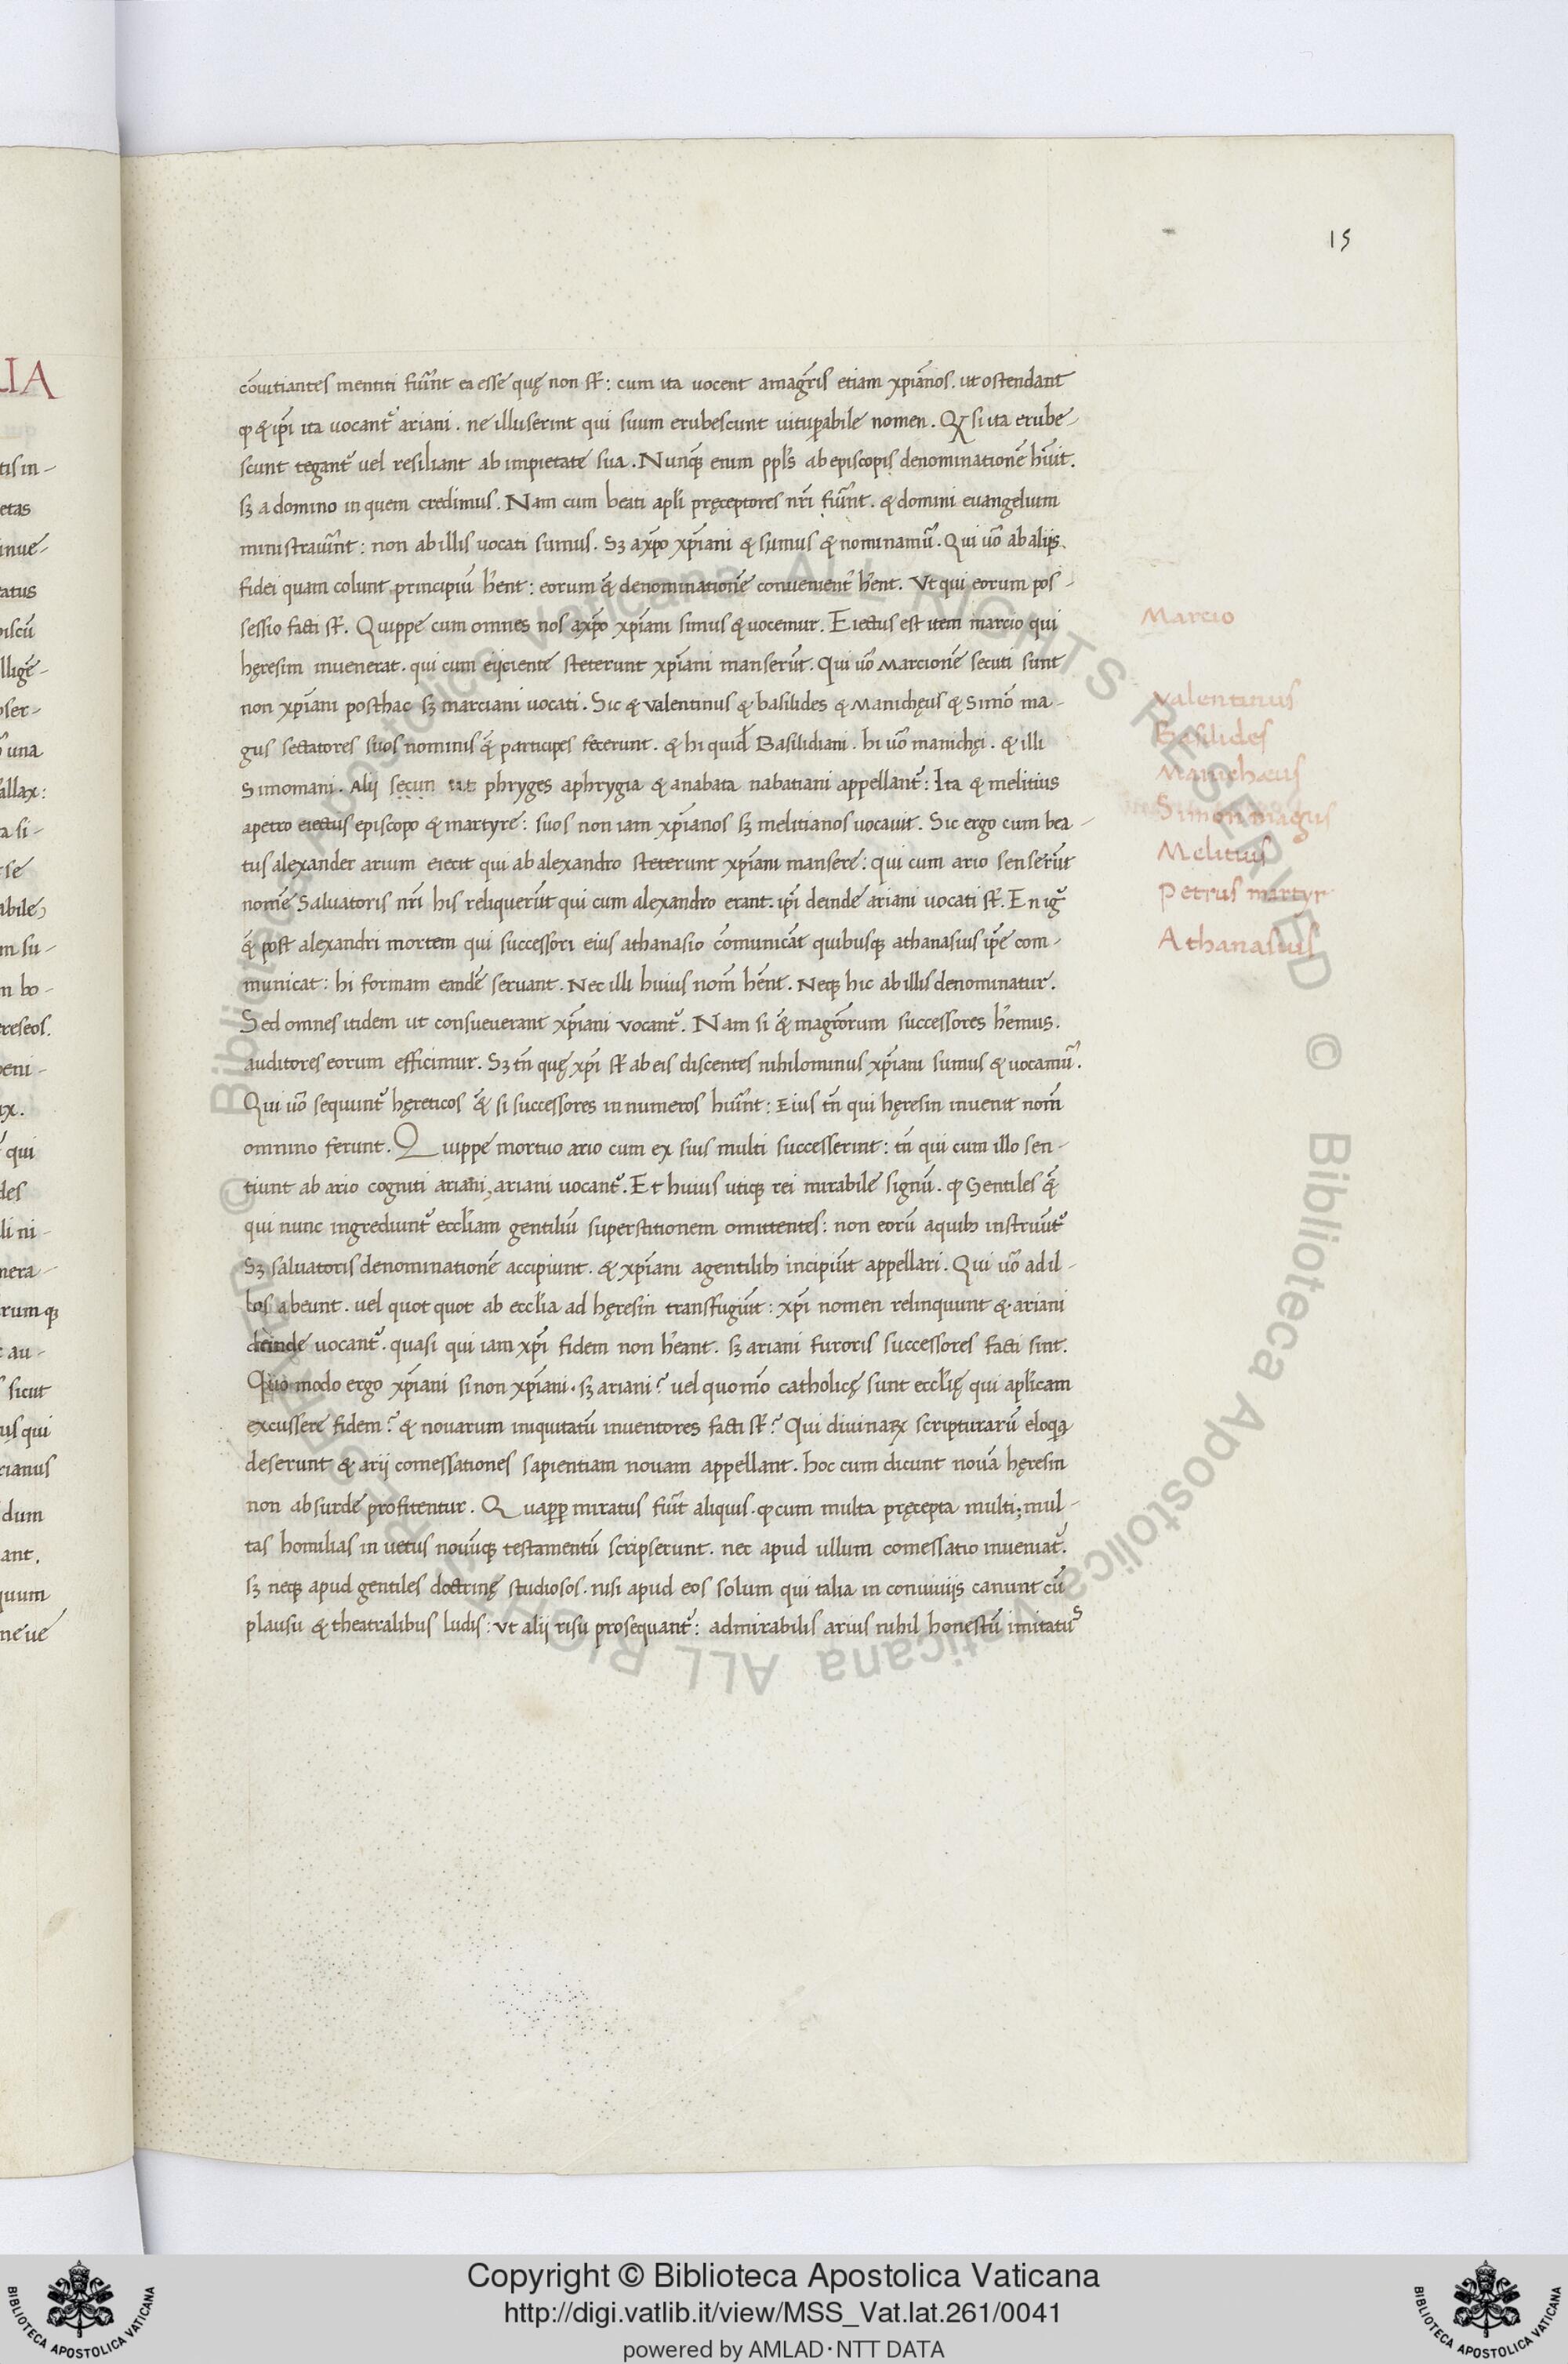 15
cōuitiantes mentiti fiūnt ea esse quę non sť: cum ita uocent amagr̄is etiam xp̄ianos. ut ostendant
ꝙ & ip̄i ita uocantᷣ ariani. ne illuserint qui suum erubescunt uitup̄abile nomen. Qꝛ si ita erube-
scunt tegantᷣ uel resiliant ab impietate sua. Nunqꝫ enim ppl's ab episcopis denominationē h̄uit.
sꝫ a domino in quem credimus. Nam cum beati apl'i pręceptores nr̄i fiūnt. & domini euangelium
ministrauūnt: non ab illis uocati sumus. Sꝫ axp̄o xp̄iani & sumus & nominamᷣ. Qui uō ab aliis
fidei quam colunt principiū h̄ent: eorum &̄ denominationē conuenient̄ h̄ent. Vt qui eorum pos-
sessio facti sť. Quippe cum omnes nos axp̄o xp̄iani simus & uocemur. Eiectus est item marcio qui
hęresim inuenerat. qui cum eijciente steterunt xp̄iani manserūt. Qui uō Marcionē secuti sunt
non xp̄iani posthac sꝫ marciani uocati. Sic & valentinus & basilides & Manichęus & Simō ma-
gus sectatores suos nominis &̄ participes fecerunt. & hi quid̄ Basilidiani. hi uō manichęi. & illi
Simoniani. Alij secun ut phryges aphrygia & anabata nabatiani appellantᷣ: Ita & melitius
apetro eiectus episcopo & martyre: suos non iam xp̄ianos sꝫ melitianos uocauit. Sic ergo cum bea-
tus alexander arium eiecit qui ab alexandro steterunt xp̄iani mansere: qui cum ario senserūt
nomē Saluatoris nr̄i his reliquerūt qui cum alexandro erant. ip̄i deinde ariani uocati sť. En ig̊
&̄ post alexandri mortem qui successori eius athanasio cōmunicāt quibusqꝫ athanasius ip̄e com-
municat: hi formam eandē seruant. Nec illi huius nom̄ hēnt. Neqꝫ hic ab illis denominatur.
Sed omnes itidem ut consueuerant xp̄iani vocantᷣ. Nam si &̄ magr̄orum successores h̄emus.
auditores eorum efficimur. Sꝫ tn̄ quę xp̄i sť ab eis discentes nihilominus xp̄iani sumus & uocamᷣ.
Qui uō sequuntᷣ hęreticos &̄ si successores innumeros huūnt: Eius tn̄ qui hęresin inuenit nom̄
omnino ferunt. Quippe mortuo ario cum ex suis multi successerint: tn̄ qui cum illo sen-
tiunt ab ario cogniti ariani, ariani uocantᷣ. Et huius utiqꝫ rei mirabile signū. ꝙ Gentiles &̄
qui nunc ingrediuntᷣ eccl'iam gentiliū superstitionem omittentes: non eorū aquibꝫ instruūtᷣ
Sꝫ saluatoris denominationē accipiunt. & xp̄iani agentilibꝫ incipiūt appellari. Qui uō ad il-
los abeunt. uel quot quot ab eccl'ia ad hęresin transfugiūt: xp̄i nomen relinquunt & ariani
deinde uocantᷣ. quasi qui iam xp̄i fidem non h̄eant. sꝫ ariani furoris successores facti sint.
Quo modo ergo xp̄iani si non xp̄iani. sꝫ ariani? uel quo mō catholicę sunt eccl'ię qui apl'icam
excussere fidem? & nouarum iniquitatū inuentores facti sť? Qui diuinaꝝ scripturarū eloqa
deserunt & arij comessationes sapientiam nouam appellant. hoc cum dicunt nouā hęresin
non absurde profitentur. Quapp miratus fiūt aliquis. ꝙ cum multa pręcepta multi; mul-
tas homilias in uetus nouūqꝫ testamentū scripserunt. nec apud ullum comessatio inueniatᷣ.
sꝫ neqꝫ apud gentiles doctrinę studiosos. nisi apud eos solum qui talia in conuiuijs canunt cū
plausu & theatralibus ludis: vt alij risu prosequantᷣ: admirabilis arius nihil honestū imitatus
Marcio
Valentinus
Basilides
Manichæus
Simon magus
Melitius
Petrus martyr
Athanasius
LIA
tis in-
etas
inue-
tatus
piscū
llige-
una
allax:
ta si-
abile
m su-
m bo-
ereseos.
peni-
qui
des
li ni-
nera-
rumqꝫ
t au-
sicut
us qui
rianus
dum
ant.
quum
ne ue
© Biblioteca Apostolica Vaticana ALL RIGHTS RESERVED © Biblioteca Apostolica Vaticana ALL RIGHTS RESERVED
Copyright © Biblioteca Apostolica Vaticana
http://digi.vatlib.it/view/MSS_Vat.lat.261/0041
powered by AMLAD·NTT DATA
BIBLIOTECA APOSTOLICA VATICANA
BIBLIOTECA APOSTOLICA VATICANA